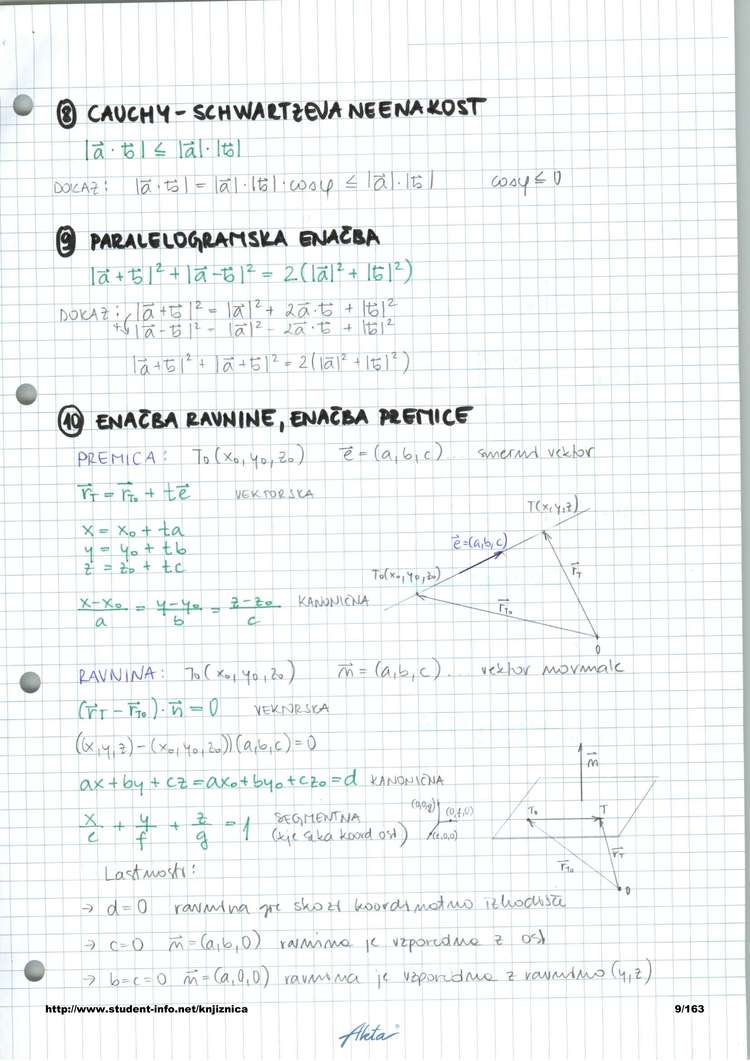 ⑧ CAUCHY - SCHWARTZEVA NEENAKOST
|a⃗ · b⃗| ≤ |a⃗| · |b⃗|
DOKAZ: |a⃗ · b⃗| = |a⃗| · |b⃗| · cosφ ≤ |a⃗| · |b⃗| cosφ ≤ 0
⑨ PARALELOGRAMSKA ENAČBA
|a⃗ + b⃗|² + |a⃗ - b⃗|² = 2(|a⃗|² + |b⃗|²)
DOKAZ: |a⃗ + b⃗|² = |a⃗|² + 2a⃗ · b⃗ + |b⃗|²
+ |a⃗ - b⃗|² = |a⃗|² - 2a⃗ · b⃗ + |b⃗|²
|a⃗ + b⃗|² + |a⃗ + b⃗|² = 2(|a⃗|² + |b⃗|²)
⑩ ENAČBA RAVNINE, ENAČBA PREMICE
PREMICA: T₀(x₀, y₀, z₀) e⃗ = (a, b, c) smerni vektor
r⃗_T = r⃗_T₀ + te⃗ VEKTORSKA
x = x₀ + ta
y = y₀ + tb
z = z₀ + tc
(x-x₀)/a = (y-y₀)/b = (z-z₀)/c KANONIČNA
T(x,y,z)
e⃗=(a,b,c)
T₀(x₀,y₀,z₀)
r⃗_T
r⃗_T₀
0
RAVNINA: T₀(x₀, y₀, z₀) n⃗ = (a, b, c). vektor normale
(r⃗_T - r⃗_T₀) · n⃗ = 0 VEKTORSKA
((x,y,z) - (x₀,y₀,z₀))(a,b,c) = 0
ax + by + cz = ax₀ + by₀ + cz₀ = d KANONIČNA
x/e + y/f + z/g = 1 SEGMENTNA
(kje seka koord osi)
(0,0,g)
(0,f,0)
(e,0,0)
n⃗
T₀
T
r⃗_T
r⃗_T₀
0
Lastnosti:
→ d=0 ravnina gre skozi koordinatno izhodišče
→ c=0 n⃗=(a,b,0) ravnina je vzporedna z osi
→ b=c=0 n⃗=(a,0,0) ravnina je vzporedna z ravnino (y,z)
http://www.student-info.net/knjiznica 9/163
Akta